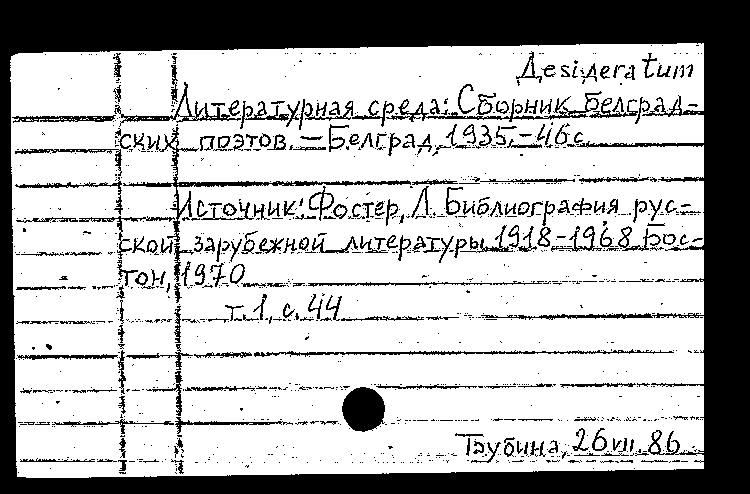 Desideratum
Литературная среда: Сборник белград-
ских поэтов. — Белград, 1935. – 46 с.
Источник: Фостер, Л. Библиография рус-
ской зарубежной литературы 1918–1968. Бос-
тон, 1970
т. 1, с. 44
Трубина, 26 VII. 86